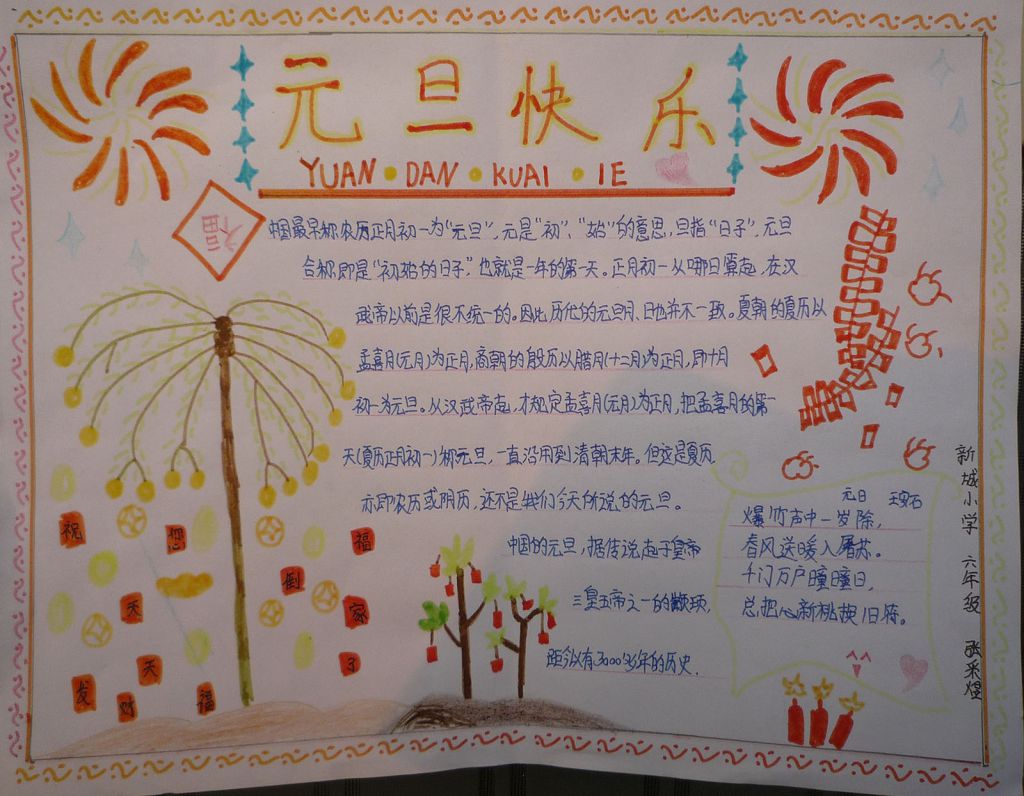 元旦快乐
YUAN·DAN·KUAI·IE
福
中国最早称农历正月初一为"元旦",元是"初"、"始"的意思,旦指"日子",元旦
合称即是"初始的日子",也就是一年的第一天。正月初一从哪日算起,在汉
武帝以前是很不统一的。因此历代的元旦月、日也并不一致。夏朝的夏历以
孟喜月(元月)为正月,商朝的殷历以腊月(十二月)为正月,即十月
初一为元旦。从汉武帝起,才规定孟喜月(元月)为正月,把孟喜月的第一
天(夏历正月初一)称元旦,一直沿用到清朝末年。但这是夏历,
亦即农历或阴历,还不是我们今天所说的元旦。
中国的元旦,据传说起于皇帝
三皇五帝之一的颛顼,
距今以有3000多年的历史.
元日 王安石
爆竹声中一岁除,
春风送暖入屠苏。
千门万户曈曈日,
总把心新桃换旧符。
新城小学 六年级
祝 您 福
天 倒 家
天 了
发 财 福